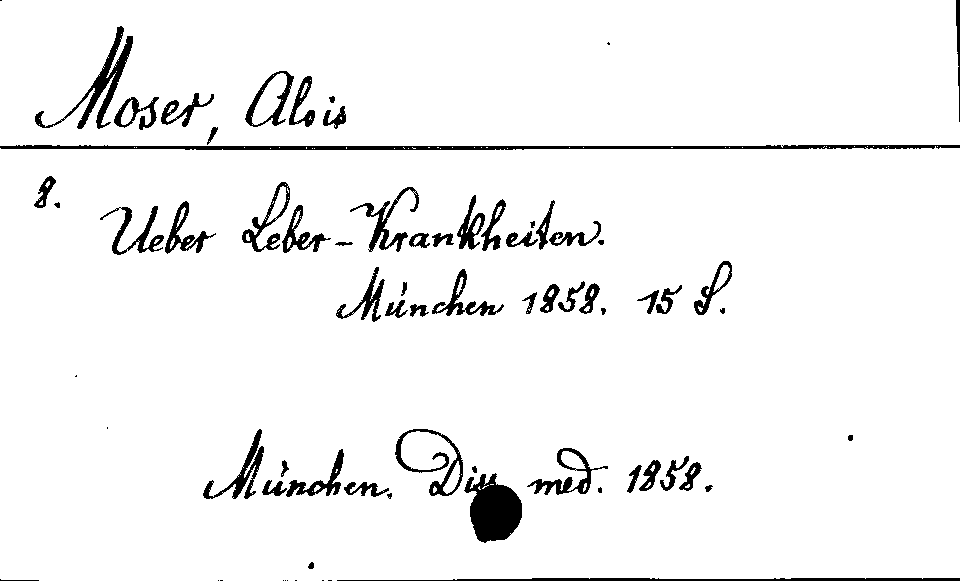 Moser, Alois
8.
Ueber Leber-Krankheiten.
München 1858. 15 S.
München. Diss med. 1858.